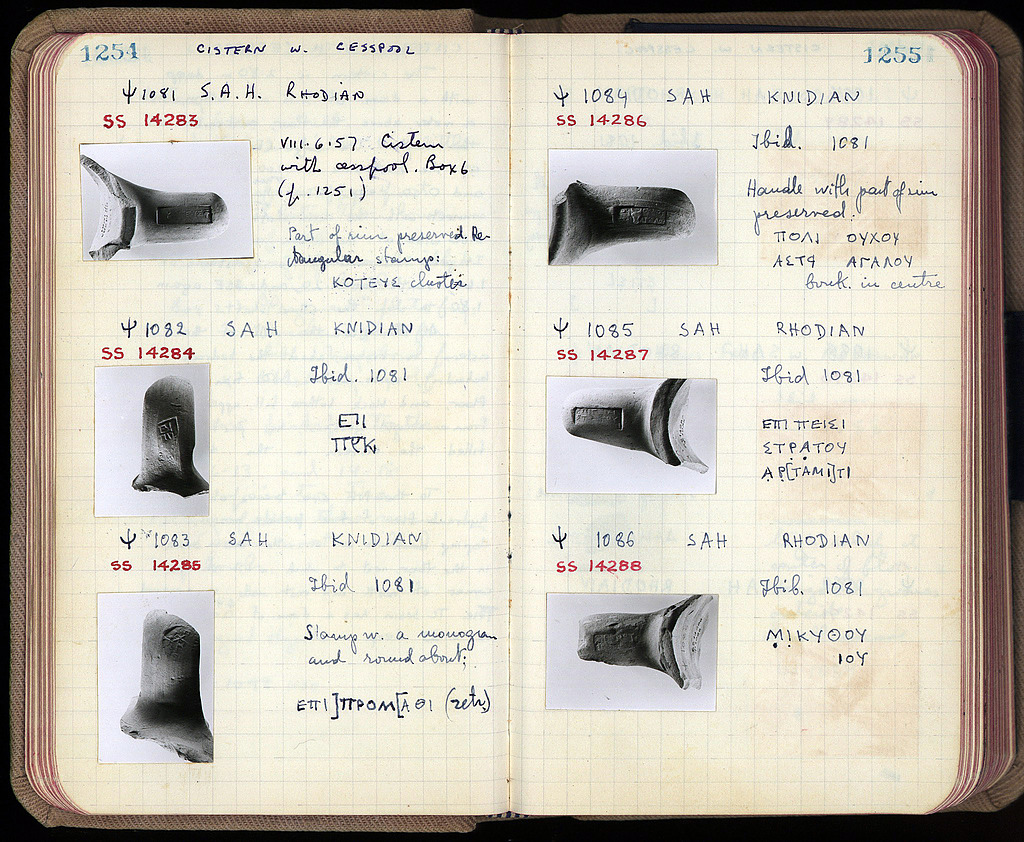 1254
CISTERN W. CESSPOOL
Ψ 1081 S.A.H. RHODIAN
SS 14283
VIII·6·57. Cistern
with cesspool. Box 6
(p. 1251)
Part of rim preserved. Re-
ctangular stamps:
ΚΟΤΕΥΣ cluster
Ψ 1082 SAH KNIDIAN
SS 14284
Ibid. 1081
ΕΠΙ
Ψ 1083 SAH KNIDIAN
SS 14285
Ibid 1081
Stamp w. a monogram
and round about;
ΕΠΙ]ΠΡΟΜ[ΑΘΙ (retr.)
1255
Ψ 1084 SAH KNIDIAN
SS 14286
Ibid. 1081
Handle with part of rim
preserved.
ΠΟΛΙ ΟΥΧΟΥ
ΑΓΑΛΟΥ
buck. in centre
Ψ 1085 SAH RHODIAN
SS 14287
Ibid 1081
ΕΠΙ ΠΕΙΣΙ
ΣΤΡΑΤΟΥ
ΑΡ[ΤΑΜΙ]ΤΙ
Ψ 1086 SAH RHODIAN
SS 14288
Ibib. 1081
ΜΙΚΥΘΟΥ
ΙΟΥ